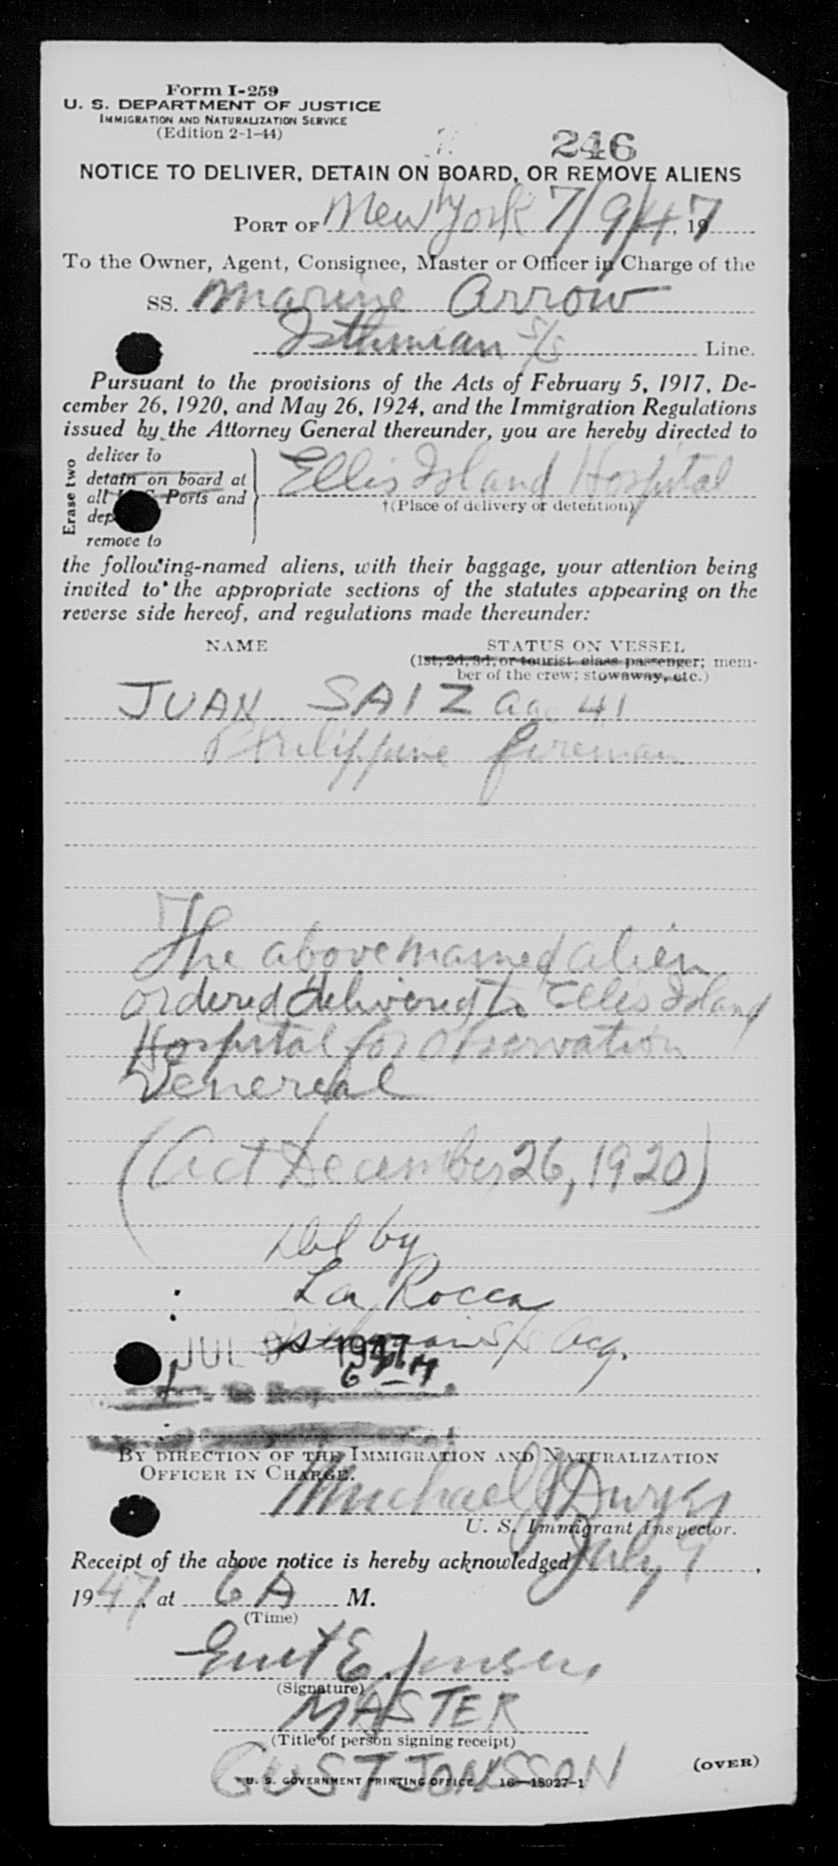 Form I-259
U. S. DEPARTMENT OF JUSTICE
IMMIGRATION AND NATURALIZATION SERVICE
(Edition 2-1-44)
246
NOTICE TO DELIVER, DETAIN ON BOARD, OR REMOVE ALIENS
PORT OF New York 7/9/47, 19
To the Owner, Agent, Consignee, Master or Officer in Charge of the
SS. Marine Arrow
Isthmian S/S Line.
Pursuant to the provisions of the Acts of February 5, 1917, De-
cember 26, 1920, and May 26, 1924, and the Immigration Regulations
issued by the Attorney General thereunder, you are hereby directed to
Erase two
deliver to
detain on board at
all U. S. Ports and
dep
remove to
Ellis Island Hospital
†(Place of delivery or detention)
the following-named aliens, with their baggage, your attention being
invited to the appropriate sections of the statutes appearing on the
reverse side hereof, and regulations made thereunder:
NAME STATUS ON VESSEL
(1st, 2d, 3d, or tourist class passenger; mem-
ber of the crew; stowaway, etc.)
JUAN SAIZ age 41
Philippine fireman
The above named alien
ordered delivered to Ellis Island
Hospital for observation
Venereal
(Act December 26, 1920)
Del by
La Rocca
Isthmian S/S Acg.
JUL 9 1947
6 PM
BY DIRECTION OF THE IMMIGRATION AND NATURALIZATION
OFFICER IN CHARGE.
Michael J Dwyer
U. S. Immigrant Inspector.
Receipt of the above notice is hereby acknowledged July 9,
1947, at 6 A M.
(Time)
Gust E. Jonsson
(Signature)
MASTER
(Title of person signing receipt)
GUST JONSSON
U. S. GOVERNMENT PRINTING OFFICE 16—18927-1
(OVER)